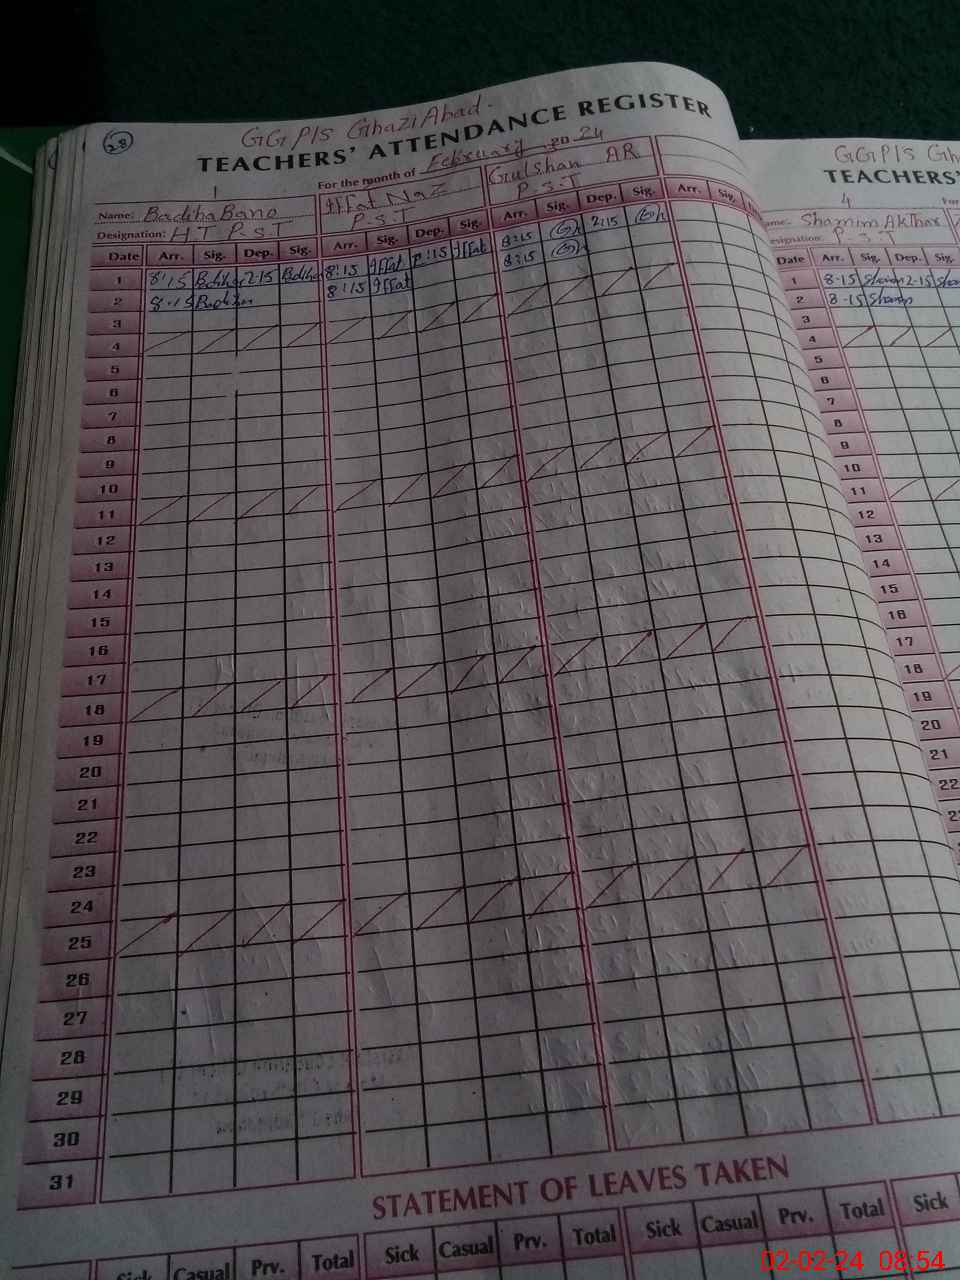 28
GGPIS GhaziAbad.
TEACHERS' ATTENDANCE REGISTER
For the month of February 20 24
1
Name: Badiha Bano Iffat Naz Gulshan AR
Designation: H.T P.S.T P.S.T P.S.T
Date Arr. Sig. Dep. Sig. Arr. Sig. Dep. Sig. Arr. Sig. Dep. Sig. Arr. Sig.
1 8:15 Badiha 2-15 Badiha 8:15 Iffat 2:15 Iffat 8:15 2:15
2 8:15 Badiha 8:15 Iffat 8:15
3
4
5
6
7
8
9
10
11
12
13
14
15
16
17
18
19
20
21
22
23
24
25
26
27
28
29
30
31
STATEMENT OF LEAVES TAKEN
Sick Casual Prv. Total Sick Casual Prv. Total Sick Casual Prv. Total Sick
GGPIS Gh
TEACHERS'
4
For
Name: Shamim Akhtar
Designation: P.S.T
Date Arr. Sig. Dep. Sig.
1 8-15 Sham 2-15 Sham
2 8-15 Sham
3
4
5
6
7
8
9
10
11
12
13
14
15
16
17
18
19
20
21
22
02-02-24 08:54